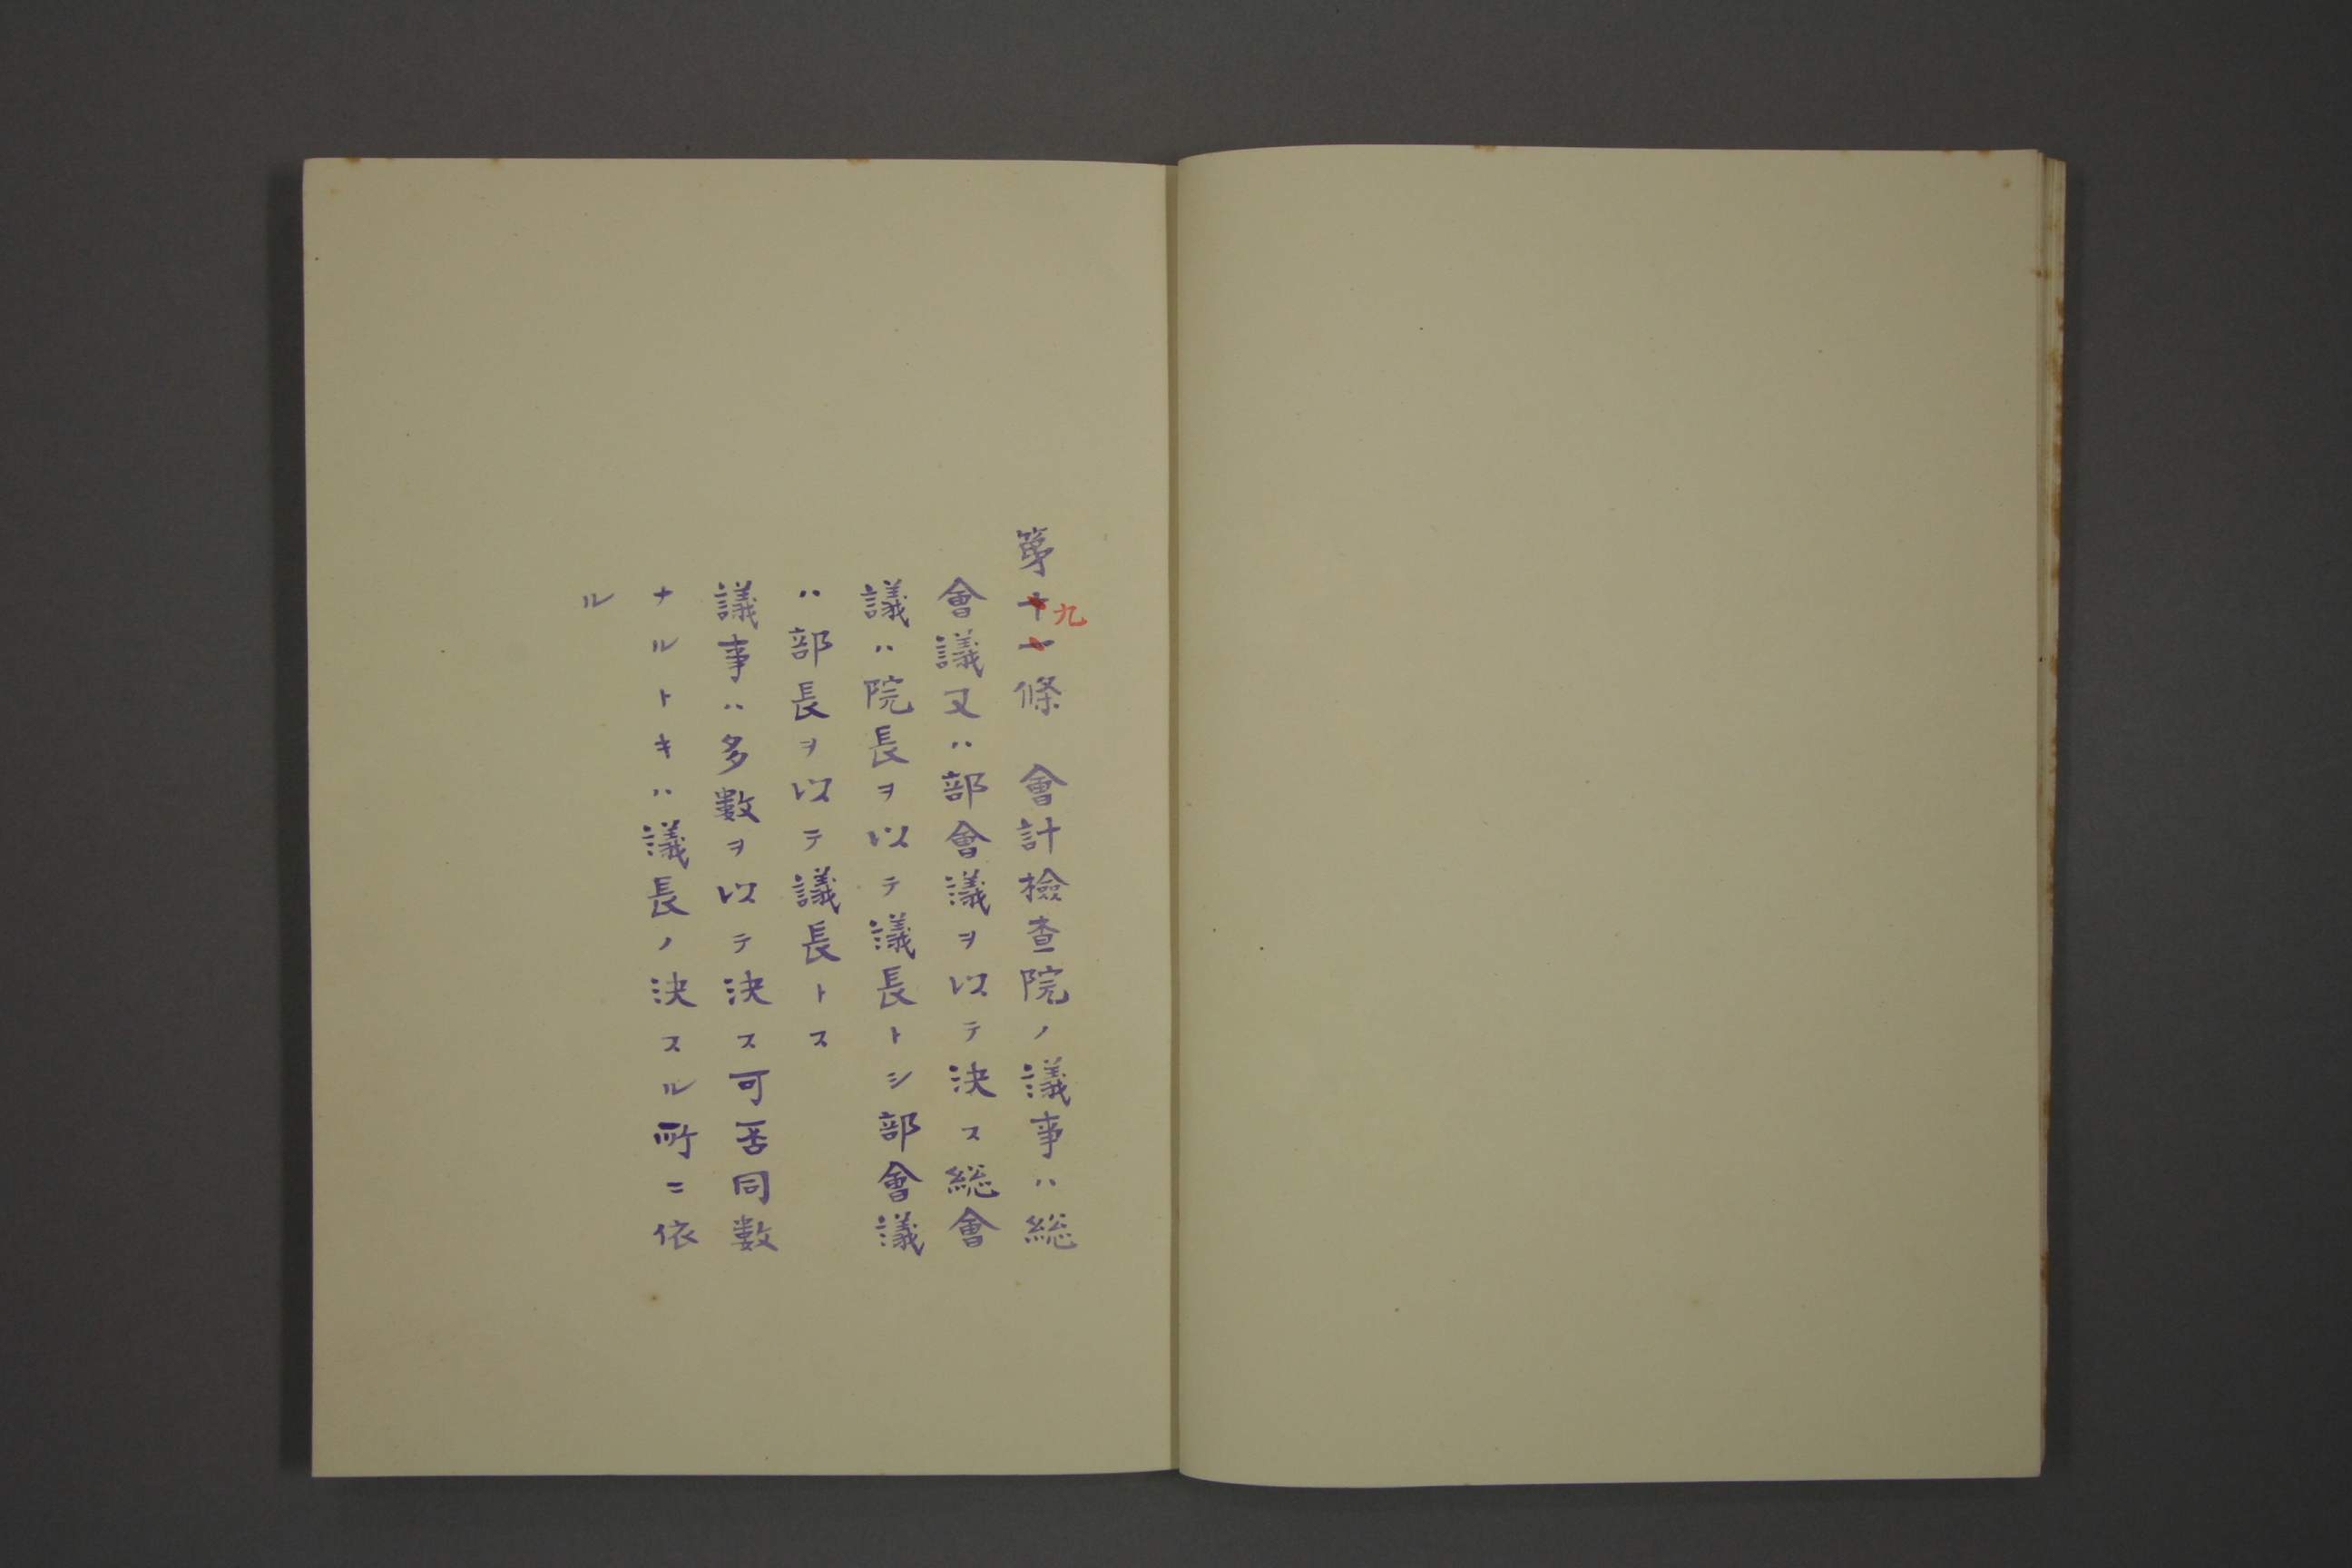 第十一條　會計檢査院ノ議事ハ総
九
會議又ハ部會議ヲ以テ決ス総會
議ハ院長ヲ以テ議長トシ部會議
ハ部長ヲ以テ議長トス
議事ハ多數ヲ以テ決ス可否同數
ナルトキハ議長ノ決スル所ニ依
ル